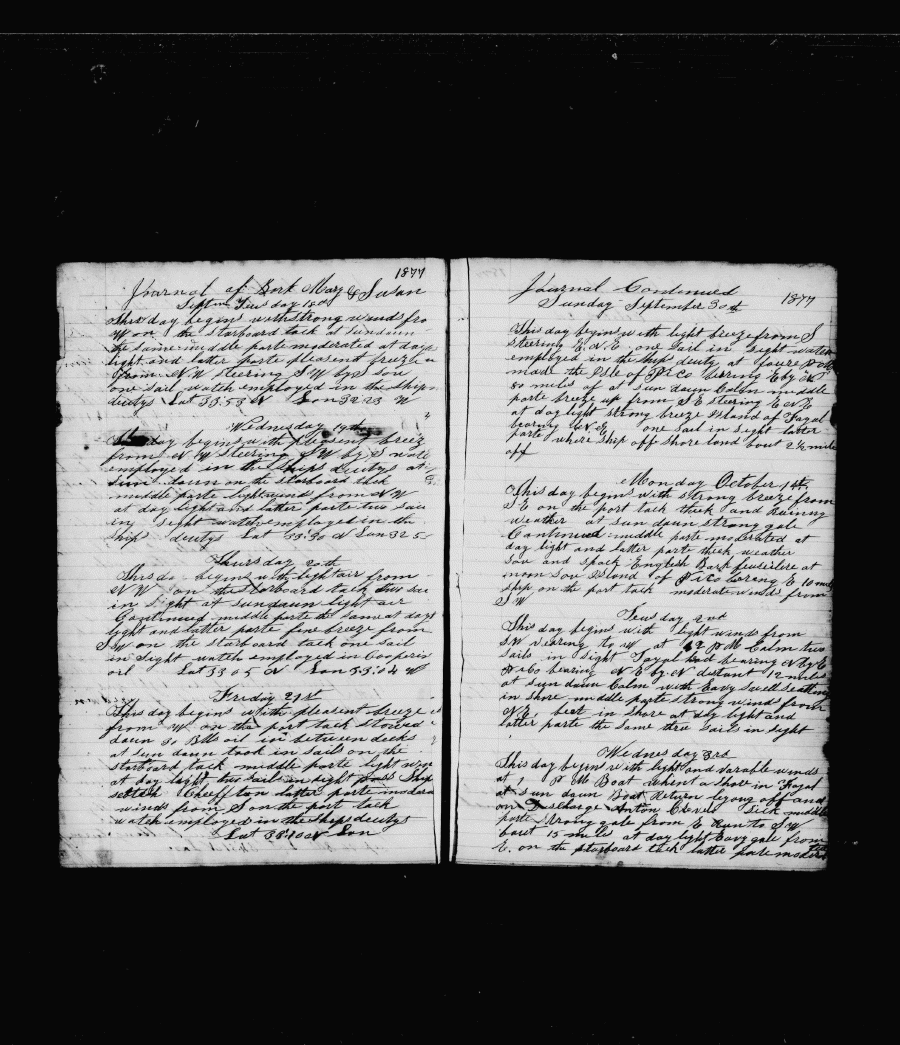 1877
Journal of Bark Mary & Susan
Septem Tuesday 18th
This day begins with strong winds fro
W on the starboard tack at sundaun
the same middle parte moderated at dayli
light and latter parte pleasent breeze
from N W steering S W by S sou
one sail watch employed in the ship
deutys Lat 33.53 N Lon 32 23 W
Wednesday 19th
day begins with pleasent breez
from N W steering S W by S wat
employed in the ships deutys at
sun daun on the starboard tack
middle parte light winds from N W
at day light and latter parte two sai
in sight watch employed in the
ship deutys Lat 33:30 N Lon 32 5
Thursday 20th
This da begins with light air from
N W on the starboard tack two sai
in sight at sundaun light air
Continued middle parte the same at dayl
light and latter parte fine breeze from
S W on the starboard tack one sail
in sight watch employed in Cooperin
oil Lat 33 05 N Lon 33:04 W
Friday 21st
This day begins with pleasent breeze
from W on the port tack stowed
daun 30 Blls oil in between decks
at sun daun took in sails on the
starboard tack middle parte light wind
at day light two sails in sight pass Ship
latter parte modera
winds from S on the port tack
watch employed in the ships deutys
Lat 33:10 N Lon
Journal Continued 1877
Sunday September 30th
This day begins with light breeze from S
steering E N E one sail in sight watch
employed in the ship deuty at foure P M
made the Isle of Pico berring E by N
80 miles of at sun daun Calm middle
parte breeze up from S E steering E N E
at day light strong breeze Island of Fayal
bearing N E one sail in sight latter
parte where ship off shore land bout 2½ mile
off
Monday October 1st
This day begins with strong breeze from
S E on the port tack thick and Rainny
weather at sun daun strong gale
Continued middle parte moderated at
day light and latter parte thick weather
sou and spock English Bark at
noon sou Island of Pico bering E 10 mil
ship on the port tack moderate winds from
S W
Teusday 2nd
This day begins with light winds from
S W vearing to W at 12 P M Calm two
sails in sight Fayal had bearing N by E
Pico bearing N E by N distant 12 miles
at sun daun Calm with Eavy swell seatting
in shore middle parte strong winds from
N E best in shore at day light and
latter parte the same three sails in sight
Wednesday 3rd
This day begins with light and varable winds
at 1 P M Boat whent a shore in Fayal
at sun daun Boat Return legung off and
on Discharge Anton Sick middle
parte strong gale from E Run to S W
bout 15 miles at day light Eavy gale from
E on the starboard tack latter parte moder